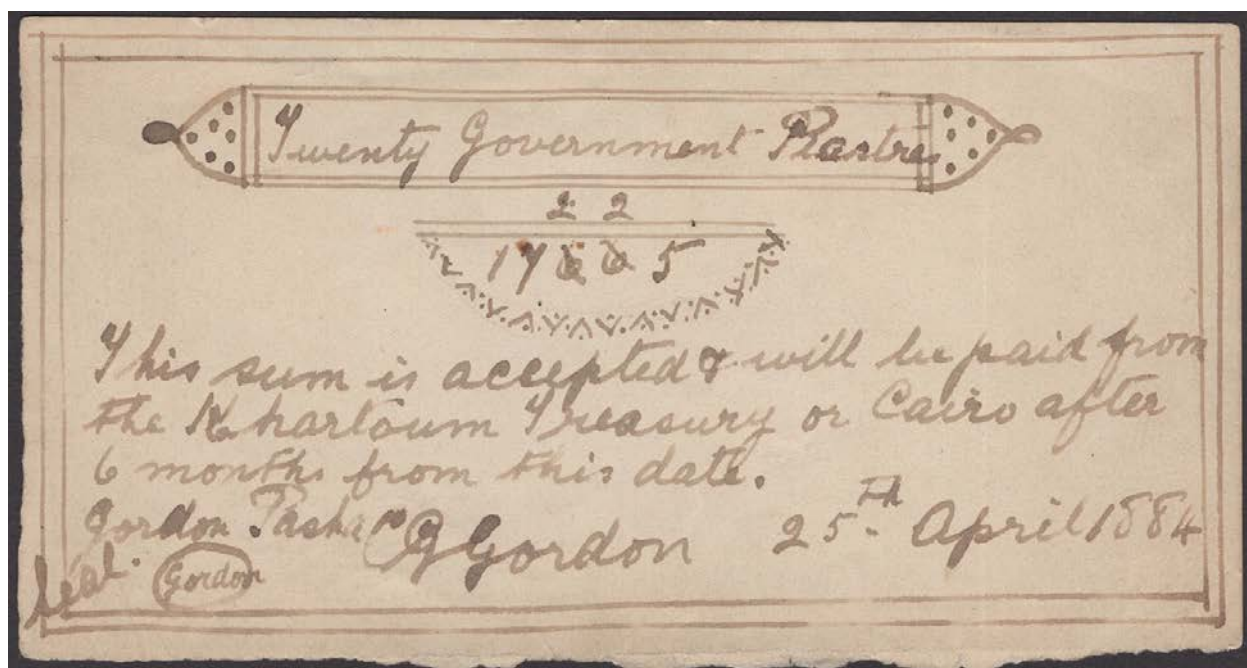 Twenty Government Piastres
2 2
17665
This sum is accepted & will be paid from
the Khartoum Treasury or Cairo after
6 months from this date.
Gordon Pasha CG Gordon 25th April 1884
Seal. Gordon